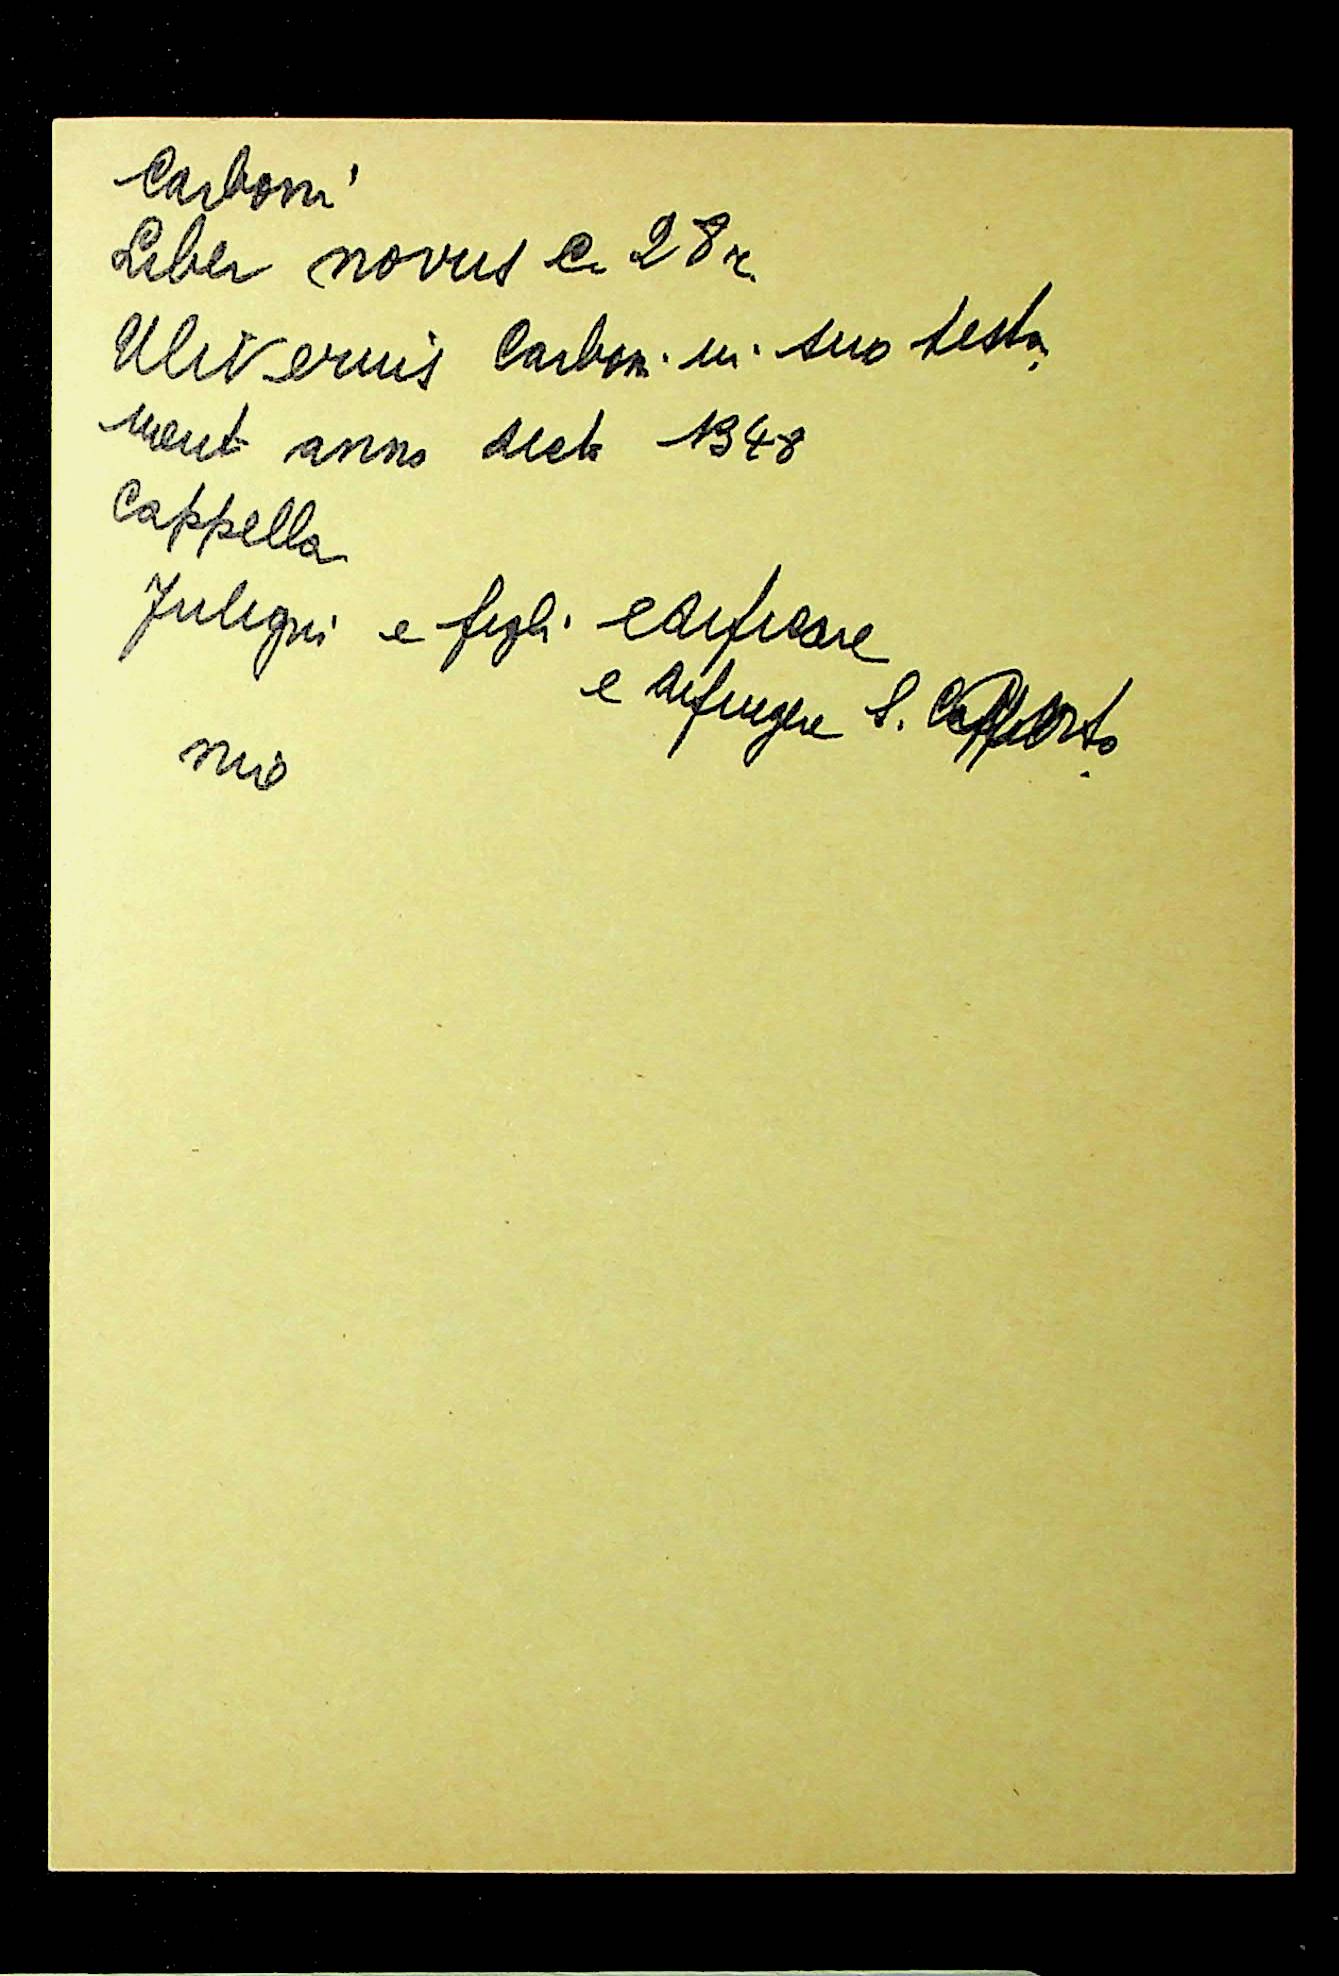 Carboni
Liber novus c. 28 r.
Uliverius Carboni in suo testa
ment anno dicto 1348
Cappella
e figli edificare
e dipingere S.
mio